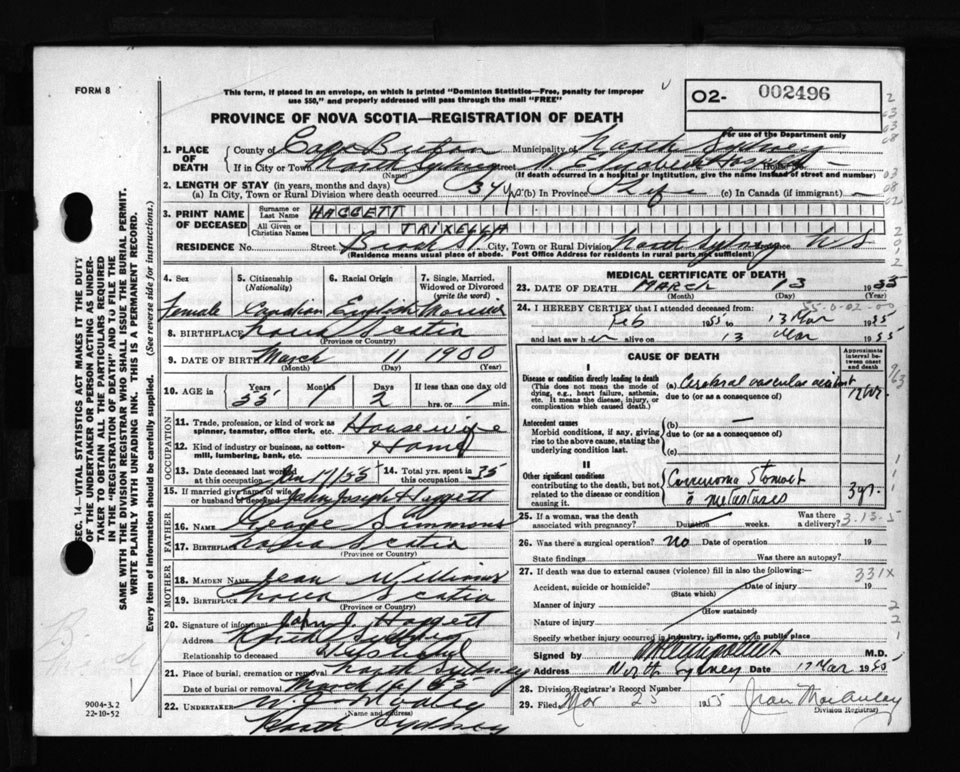 FORM 8
This form, if placed in an envelope, on which is printed "Dominion Statistics—Free, penalty for improper
use $50," and properly addressed will pass through the mail "FREE"
PROVINCE OF NOVA SCOTIA—REGISTRATION OF DEATH
02- 002496
For use of the Department only
SEC. 14—VITAL STATISTICS ACT MAKES IT THE DUTY
OF THE UNDERTAKER OR PERSON ACTING AS UNDER-
TAKER TO OBTAIN ALL THE PARTICULARS REQUIRED
IN THE "REGISTRATION OF DEATH" AND TO FILE THE
SAME WITH THE DIVISION REGISTRAR WHO SHALL ISSUE THE BURIAL PERMIT.
WRITE PLAINLY WITH UNFADING INK. THIS IS A PERMANENT RECORD.
Every item of information should be carefully supplied. (See reverse side for instructions.)
1. PLACE OF DEATH
County of Cape Breton Municipality of North Sydney
If in City or Town North Sydney Street St. Elizabeth Hospital
(Name) (If death occurred in a hospital or institution, give the name instead of street and number)
2. LENGTH OF STAY (in years, months and days)
(a) In City, Town or Rural Division where death occurred 34 yrs (b) In Province Life (c) In Canada (if immigrant) —
3. PRINT NAME OF DECEASED
Surname or Last Name HAGGETT
All Given or Christian Names TRIXELLA
RESIDENCE No. Street Brook St. City, Town or Rural Division North Sydney Province N S
(Residence means usual place of abode. Post Office Address for residents in rural parts not sufficient)
4. Sex
Female
5. Citizenship (Nationality)
Canadian
6. Racial Origin
English
7. Single, Married, Widowed or Divorced (write the word)
Married
8. BIRTHPLACE Nova Scotia
(Province or Country)
9. DATE OF BIRTH March 11 1900
(Month) (Day) (Year)
10. AGE in Years 55 Months Days 2 If less than one day old
hrs. or min.
OCCUPATION
11. Trade, profession, or kind of work as spinner, teamster, office clerk, etc. Housewife
12. Kind of industry or business, as cotton-mill, lumbering, bank, etc. Home
13. Date deceased last worked at this occupation Jan 17/55
14. Total yrs. spent in 35
15. If married give name of wife or husband of deceased John Joseph Haggett
FATHER
16. Name George Simmons
17. Birthplace Nova Scotia
(Province or Country)
MOTHER
18. Maiden Name Jean Williams
19. Birthplace Nova Scotia
(Province or Country)
20. Signature of informant John J. Haggett
Address North Sydney
Relationship to deceased Husband
21. Place of burial, cremation or removal North Sydney
Date of burial or removal March 16/55
22. UNDERTAKER
(Name and address)
North Sydney
9004-3.2
22-10-52
MEDICAL CERTIFICATE OF DEATH
23. DATE OF DEATH MARCH 13 1955
(Month) (Day) (Year)
24. I HEREBY CERTIFY that I attended deceased from:
Feb 1955 to 13 Mar 1955
and last saw her alive on 13 Mar 1955
CAUSE OF DEATH
Approximate interval between onset and death
I
Disease or condition directly leading to death
(This does not mean the mode of dying, e.g., heart failure, asthenia, etc. It means the disease, injury, or complication which caused death.)
(a) Cerebral vascular accident
due to (or as a consequence of)
Antecedent causes
Morbid conditions, if any, giving rise to the above cause, stating the underlying condition last.
(b) —
due to (or as a consequence of)
(c)
II
Other significant conditions
contributing to the death, but not related to the disease or condition causing it.
Carcinoma Stomach
c̄ metastases
3 yr.
25. If a woman, was the death associated with pregnancy? Duration weeks. Was there a delivery?
3.13.5
26. Was there a surgical operation? NO Date of operation 19
State findings Was there an autopsy?
27. If death was due to external causes (violence) fill in also the following:—
331X
Accident, suicide or homicide? Date of injury 19
(State which)
Manner of injury
(How sustained)
Nature of injury
Specify whether injury occurred in industry, in home, or in public place
Signed by M.D.
Address North Sydney Date 17 Mar 1955
28. Division Registrar's Record Number
29. Filed Mar 25 1955
Division Registrar